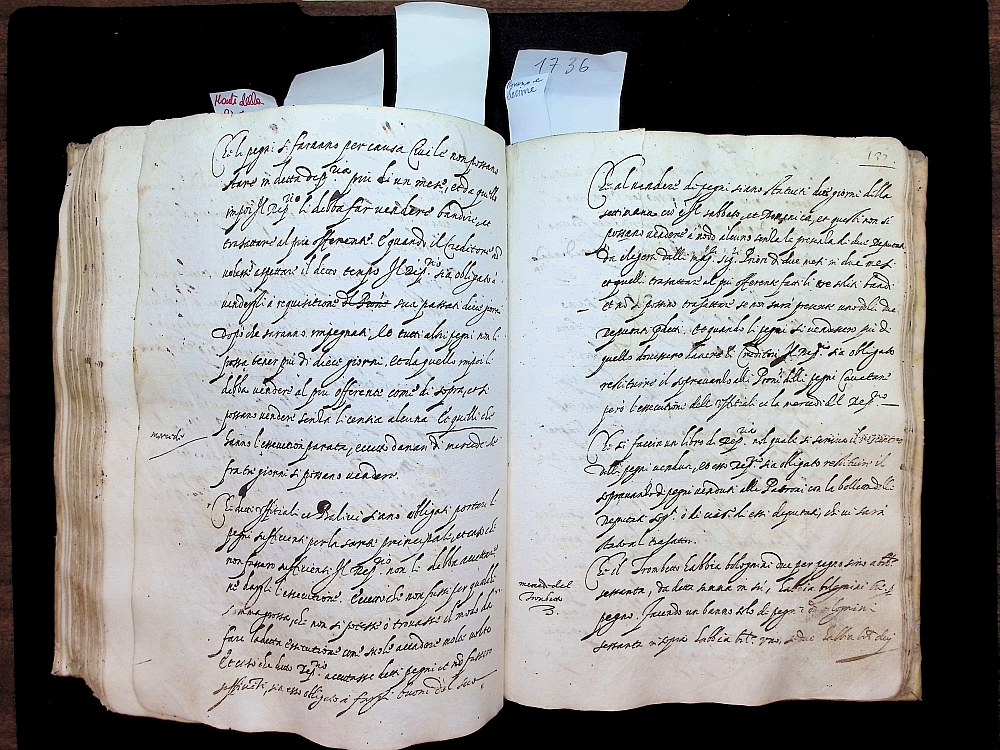 Monte della
1736
Che li pegni si faranno per causa Civile non possano
stare in detta dep.ria più di un mese, et da quello
impoi Il Dep.rio li debba far vendere bandire, et
trasattare al più offerente. E quando il Creditore nō
volesse aspettare il detto tempo Il Dep.rio sia obligato a
venderli a requisitione sua passati dieci giorni
dopo che saranno impegnati, et tutti altri pegni non li
possa tener più di dieci giorni, et da quello impoi li
debba vendere al più offerente come di sopra, et si
possano vendere senza licentia alcuna. Et quelli che
hanno l'essecution parata, eccetto danari di mercede che
fra tre giorni si possano vendere.
mercede
Che detti offitiali et Balivi siano obligati portare li
pegni sufficienti per la sorte principale, et caso che
non fossero sufficienti Il Dep.rio non li debba accettare
né dargli l'essecutione. Eccetto che non fusse per qualche
somma grossa, che non si potesse o trovasse il modo da
fare la detta essecutione come suole accadere molte volte
Et caso che detto Dep.rio accettasse detti pegni et nō fussero
sufficienti, sia esso obligato a farli buoni del suo
137
Che al vendere di pegni siano statuti dieci giorni della
settimana cioè il sabbato, et Domenica, et questi non si
possano vendere a modo alcuno senza la presenza di due Deputati
da elegersi dalli mag.ci sig.ri Priori di due mesi in due mesi
et quelli trasattare al più offerente fatti li tre soliti bandi
et nō si possino trasattare se non sarà presente uno delli due
deputati predetti, et quando li pegni si vendessero più di
quello dovessero havere li Creditori Il Dep.rio sia obligato
restituire il sopravanzo alli Proni delli pegni cavatone
però l'essecutioni dell'offitiali et la mercede del Dep.rio
Che si faccia un libro di Dep.ria nel quale si scriva il
delli pegni venduti, et esso Dep.rio sia obligato restituire il
sopravanzo di pegni venduti alli Padroni con la bolletta delli
Deputati sop.ti o di uno di essi deputati, che vi sarà
stato al trasatto.
Che il Trombetta habbia bolognini due per pegno sino a bol.
sessanta, da detta summa in su, habbia bolognini tre per
pegno, facendo un banno solo di pegni da bolognini
sessanta in giù habbia bol. uno, e due habbia bol. dui
mercede del
Trombetta